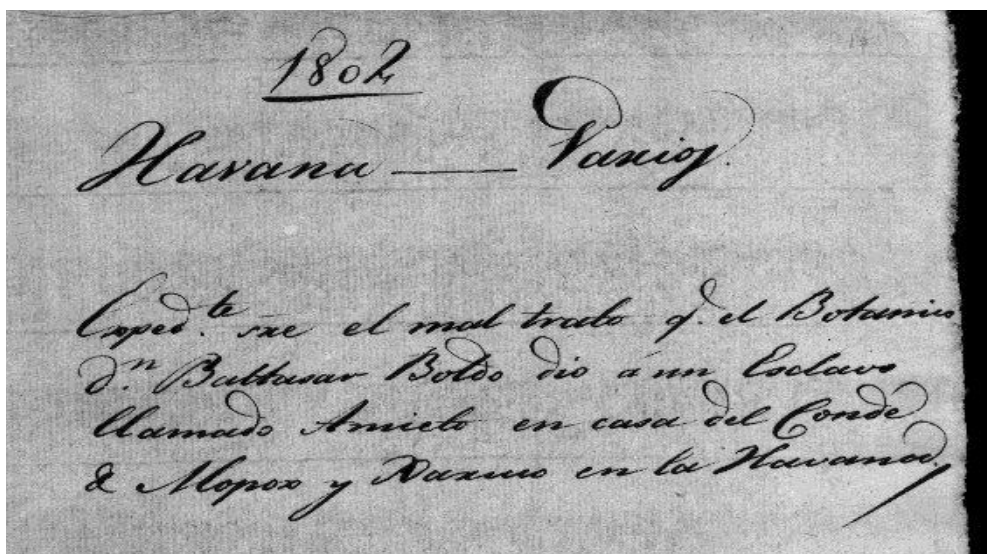 1802
Havana — Varios.
Exped.te sre el mal trato q.e el Botanico
d.n Baltasar Boldo dio á un Esclavo
llamado Aniceto en casa del Conde
de Mopox y Jaruco en la Havana.